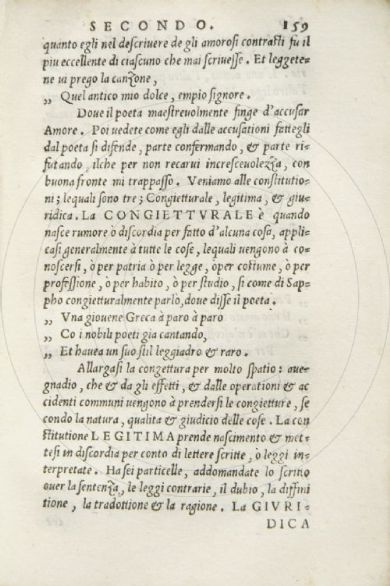 SECONDO. 159
quanto egli nel descriuere de gli amorosi contrasti fù il
piu eccellente di ciascuno che mai scriuesse. Et leggete=
ne ui prego la canzone,
„ Quel antico mio dolce, empio signore.
Doue il poeta maestreuolmente finge d'accusar
Amore. Poi uedete come egli dalle accusationi fattegli
dal poeta si difende, parte confermando, & parte ri=
futando, ilche per non recarui increscеuolezza, con
buona fronte mi trappasso. Veniamo alle constitutio=
ni; lequali sono tre; Congietturale, legitima, & giu=
ridica. La CONGIETTVRALE è quando
nasce rumore ò discordia per fatto d'alcuna cosa, appli=
casi generalmente à tutte le cose, lequali uengono à co=
noscersi, ò per patria ò per legge, ò per costume, ò per
professione, ò per habito, ò per studio, si come di Sap=
pho congietturalmente parlò, doue disse il poeta.
„ Vna giouene Greca à paro à paro
„ Co i nobili poeti gia cantando,
„ Et hauea un suo stil leggiadro & raro.
Allargasi la congettura per molto spatio: aue=
gnadio, che & da gli effetti, & dalle operationi & ac
cidenti communi uengono à prendersi le congietture, se
condo la natura, qualita & giudicio delle cose. La con
stitutione LEGITIMA prende nascimento & met=
tesi in discordia per conto di lettere scritte, ò leggi in=
terpretate. Ha sei particelle, addomandate lo scritto
ouer la sentenza, le leggi contrarie, il dubio, la diffini
tione, la tradottione & la ragione. La GIVRI=
DICA